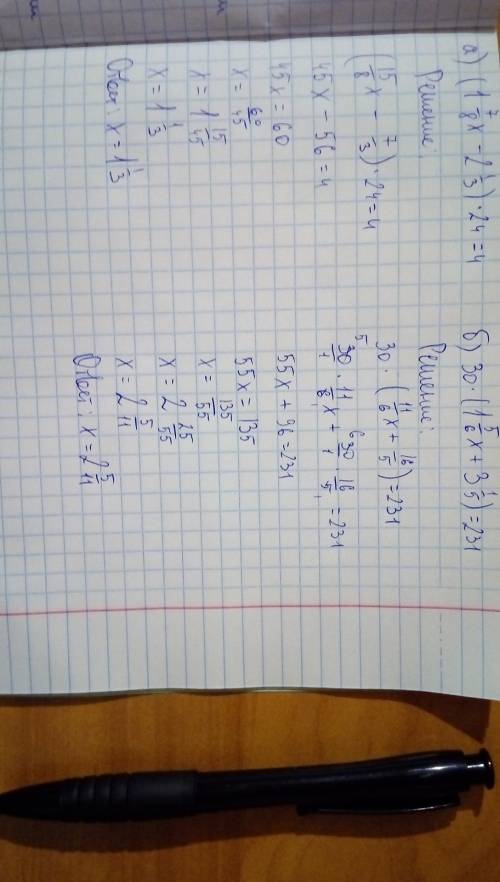 а) (1 7/8 x - 2 1/3) · 24 = 4
Решение:
(15/8 x - 7/3) · 24 = 4
45x - 56 = 4
45x = 60
x = 60/45
x = 1 15/45
x = 1 1/3
Ответ: x = 1 1/3
б) 30 · (1 5/6 x + 3 1/5) = 231
Решение:
30 · (11/6 x + 16/5) = 231
5 30/1 · 11/6 x + 6 30/1 · 16/5 = 231
55x + 96 = 231
55x = 135
x = 135/55
x = 2 25/55
x = 2 5/11
Ответ: x = 2 5/11